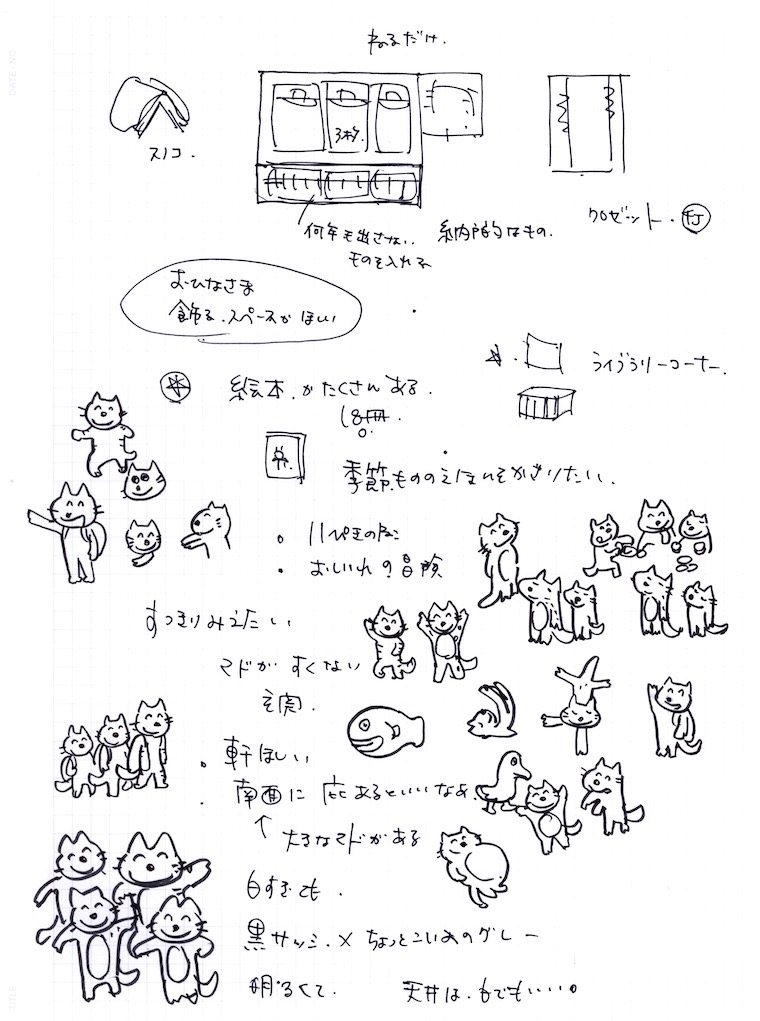 ねるだけ.
スノコ.
何年も出さない
ものを入れる
納戸的なもの.
クロゼット.
おひなさま
飾る.スペースがほしい
ライブラリーコーナー.
絵本.がたくさんある.
18冊.
季節もののえほんをかざりたい.
おしいれの冒険
すっきりみえたい
マドがすくない
玄関.
軒ほしい
南面に庇あるといいなぁ.
大きなマドがある
白すぎても.
黒サッシ.×ちょっとこいめのグレー
明るくて.
天井は.